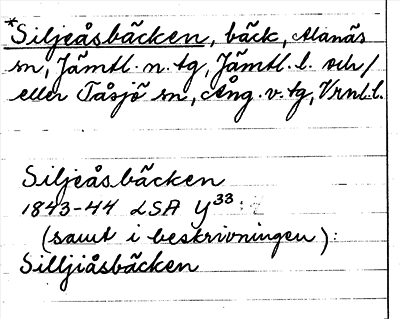 *Siljeåsbäcken, bäck, Alanäs
sn, Jämtl. n. tg, Jämtl. l. och/
eller Tåsjö sn, Ång. v. tg, Vrnl. l.
Siljeåsbäcken
1843-44 LSA Y33:
(samt i beskrivningen):
Silljiåsbäcken